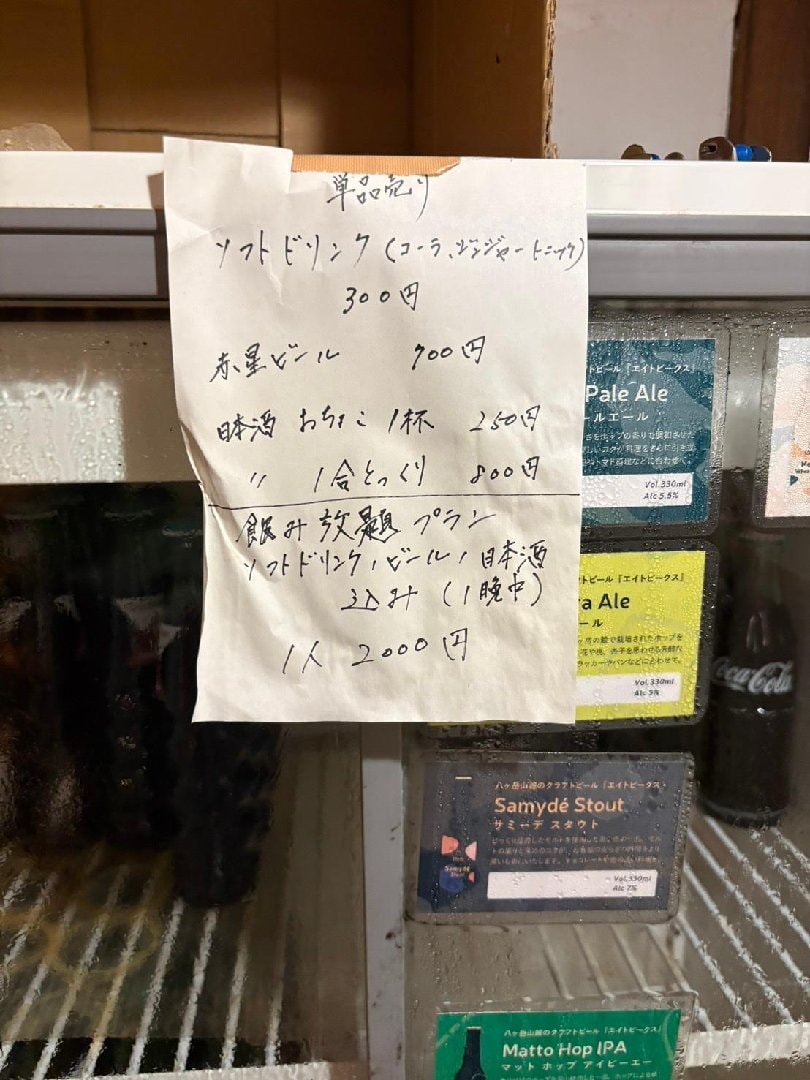 単品売り
ソフトドリンク(コーラ、ジンジャー トニック)
300円
赤星ビール 700円
日本酒 おちょこ 1杯 250円
〃 1合とっくり 800円
飲み放題 プラン
ソフトドリンク, ビール, 日本酒
込み (1晩中)
1人 2000円
トビール『エイトピークス』
Pale Ale
ールエール
Vol.330ml
Alc 5.5%
トビール『エイトピークス』
a Ale
ール
Vol.330ml
Alc 5%
Coca-Cola
八ヶ岳山麓のクラフトビール『エイトピークス』
Samydé Stout
サミーデ スタウト
Vol.330ml
Alc 7%
八ヶ岳山麓のクラフトビール『エイトピークス』
Matto Hop IPA
マット ホップ アイピーエー